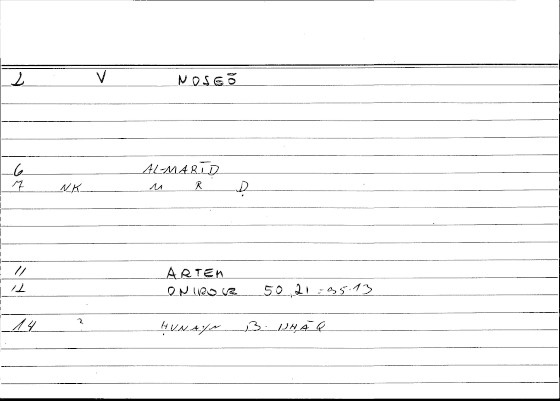 2 V NOSEŌ
6 AL-MARĪḌ
7 NK M R Ḍ
11 ARTEM
12 ONIROCR 50,21 = 95.13
14 2 ḤUNAYN B. ISḤĀQ